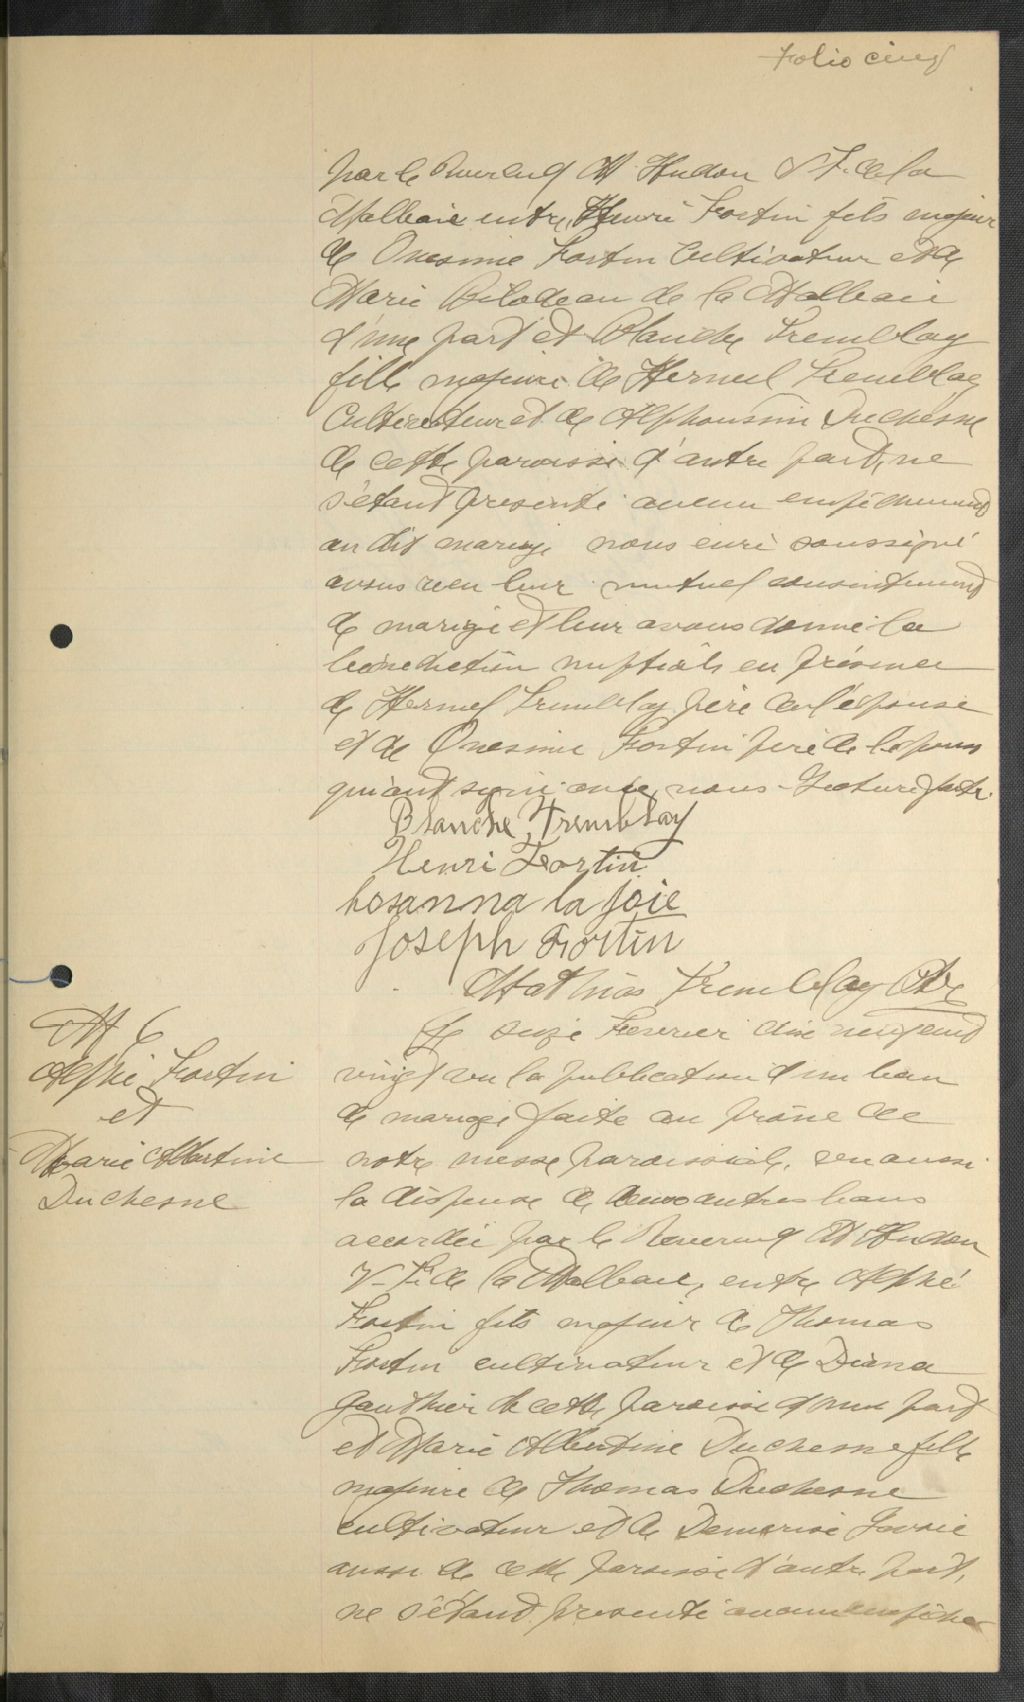 Folio cinq
par le Reverend M. Hudon V. F. de la
Malbaie entre Henri Fortin fils majeur
de Onesime Fortin Cultivateur et de
Marie Bilodeau de la Malbaie
d'une part et Blanche Tremblay
fille majeure de Hermel Tremblay
Cultivateur et de Alphonsine Duchesne
de cette paroisse d'autre part, ne
s'étant presenté aucun empêchement
au dit mariage nous curé soussigné
avons reçu leur mutuel consentement
de mariage et leur avons donné la
bénédiction nuptiale en présence
de Hermel Tremblay père de l'épouse
et de Onesime Fortin père de l'époux
qui ont signé avec nous. Lecture faite.
Blanche Tremblay
Henri Fortin
Losanna la joie
Joseph Fortin
Mathias Tremblay Ptre
M 6
Alphé Fortin
et
Marie Albertine
Duchesne
Le seize Fevrier mil neuf cent
vingt vu la publication d'un ban
de mariage faite au prône de
notre messe paroissiale, vu aussi
la dispense de deux autres bans
accordée par le Reverend M Hudon
V. F. de la Malbaie, entre Alphé
Fortin fils majeur de Thomas
Fortin cultivateur et de Diana
Gauthier de cette paroisse d'une part
et Marie Albertine Duchesne fille
majeure de Thomas Duchesne
cultivateur et de Demerise
aussi de cette paroisse d'autre part,
ne s'étant presenté aucun empêche